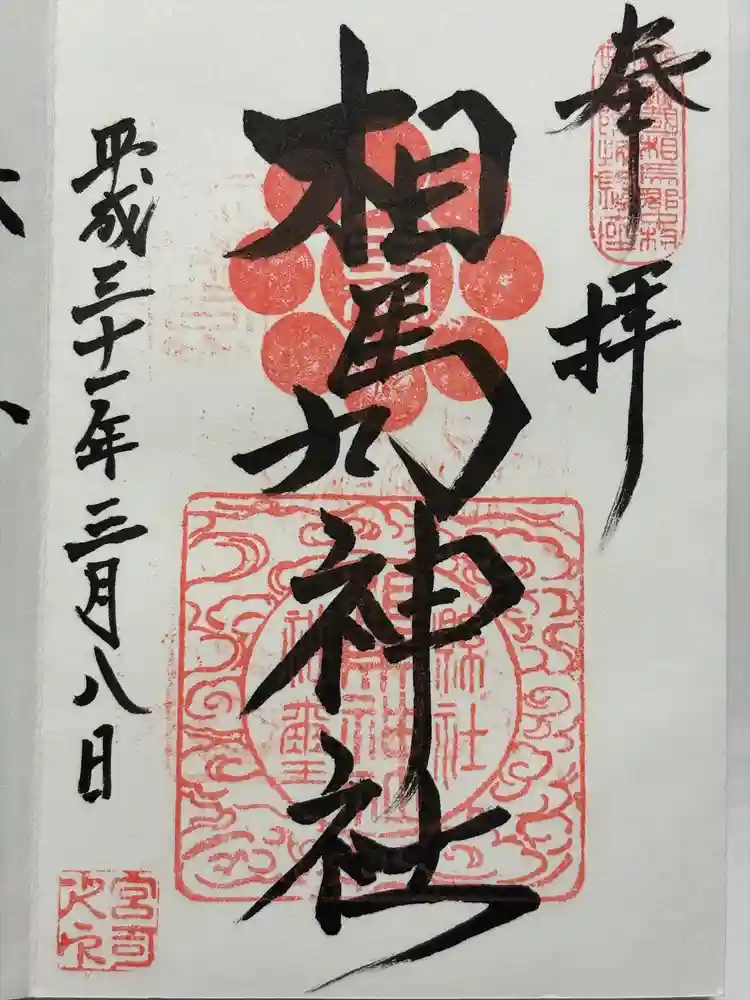 奉拝
相馬神社
平成三十一年三月八日
宮司